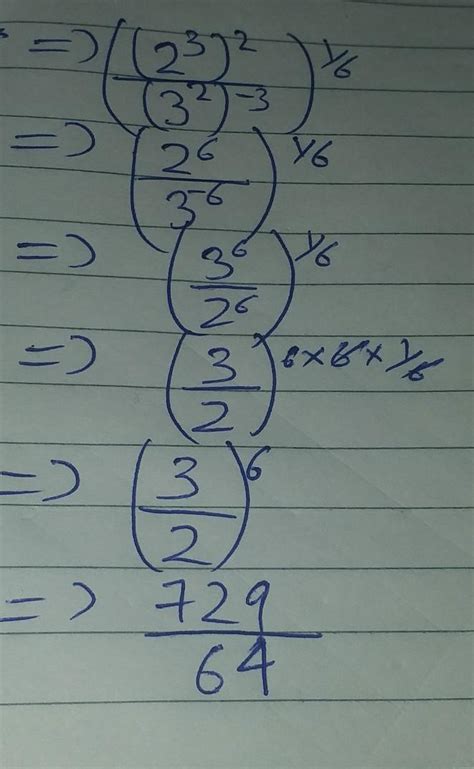 => ((2³)² / (3²)⁻³)^1/6
=> (2⁶ / 3⁻⁶)^1/6
=> (3⁶ / 2⁶)^1/6
=> (3 / 2)^6×6×1/6
=> (3 / 2)⁶
=> 729 / 64